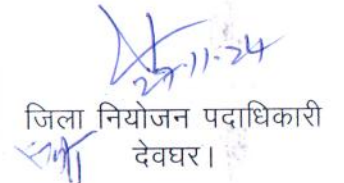 27-11-24
जिला नियोजन पदाधिकारी
देवघर।